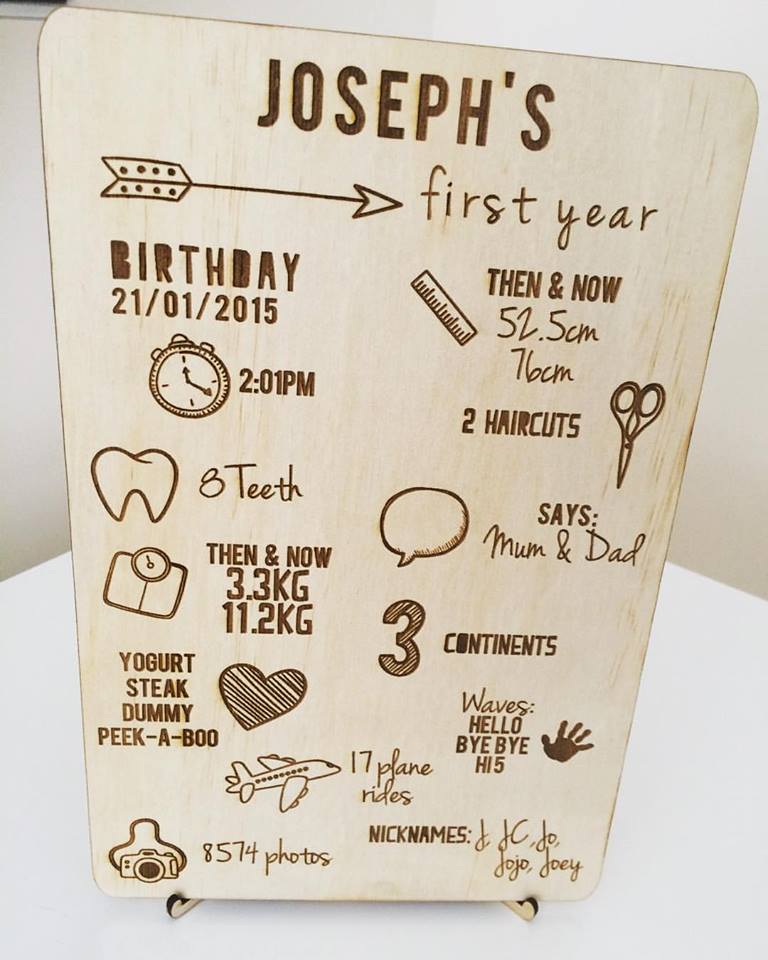 JOSEPH'S
first year
BIRTHDAY
21/01/2015
2:01PM
8 Teeth
THEN & NOW
3.3KG
11.2KG
YOGURT
STEAK
DUMMY
PEEK-A-BOO
17 plane
rides
8574 photos
THEN & NOW
52.5cm
76cm
2 HAIRCUTS
SAYS:
Mum & Dad
3 CONTINENTS
Waves:
HELLO
BYE BYE
HI5
NICKNAMES: J, JC, Jo,
Jojo, Joey